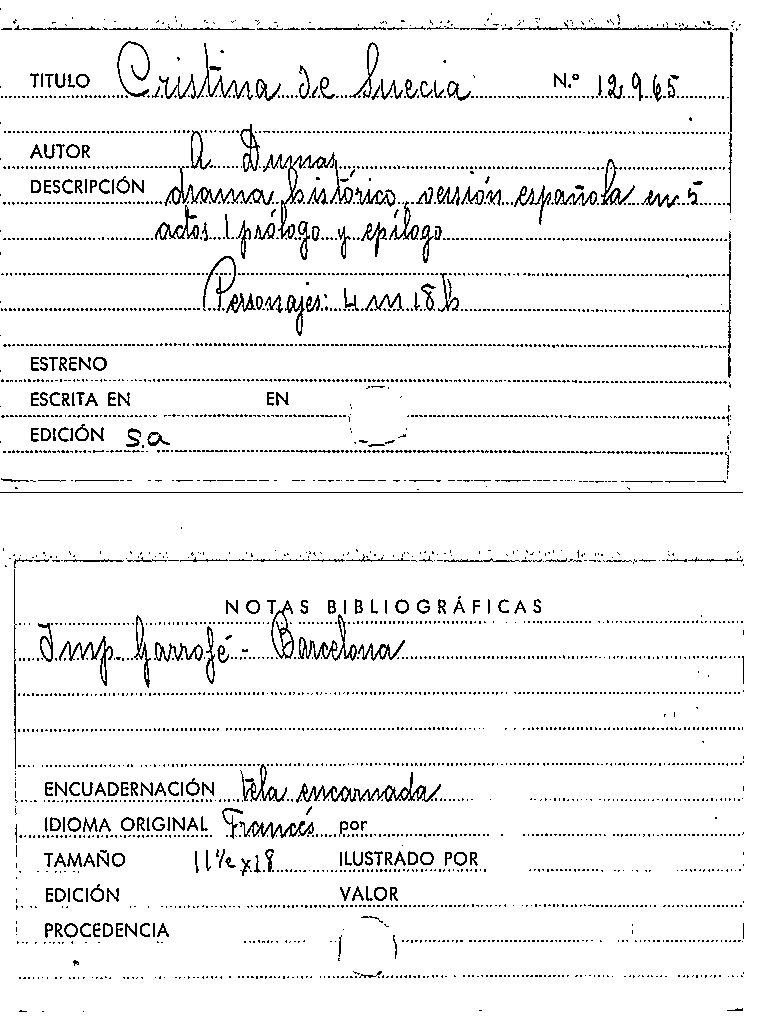 TITULO Cristina de Suecia N.º 12965
AUTOR A Dumas
DESCRIPCIÓN drama histórico, versión española en 5
actos 1 prólogo y epílogo
Personajes: 4 m 18 h
ESTRENO
ESCRITA EN EN
EDICIÓN s.a
NOTAS BIBLIOGRÁFICAS
Imp. Garrofé - Barcelona
ENCUADERNACIÓN tela encarnada
IDIOMA ORIGINAL Francés por
TAMAÑO 11½ x 18 ILUSTRADO POR
EDICIÓN VALOR
PROCEDENCIA